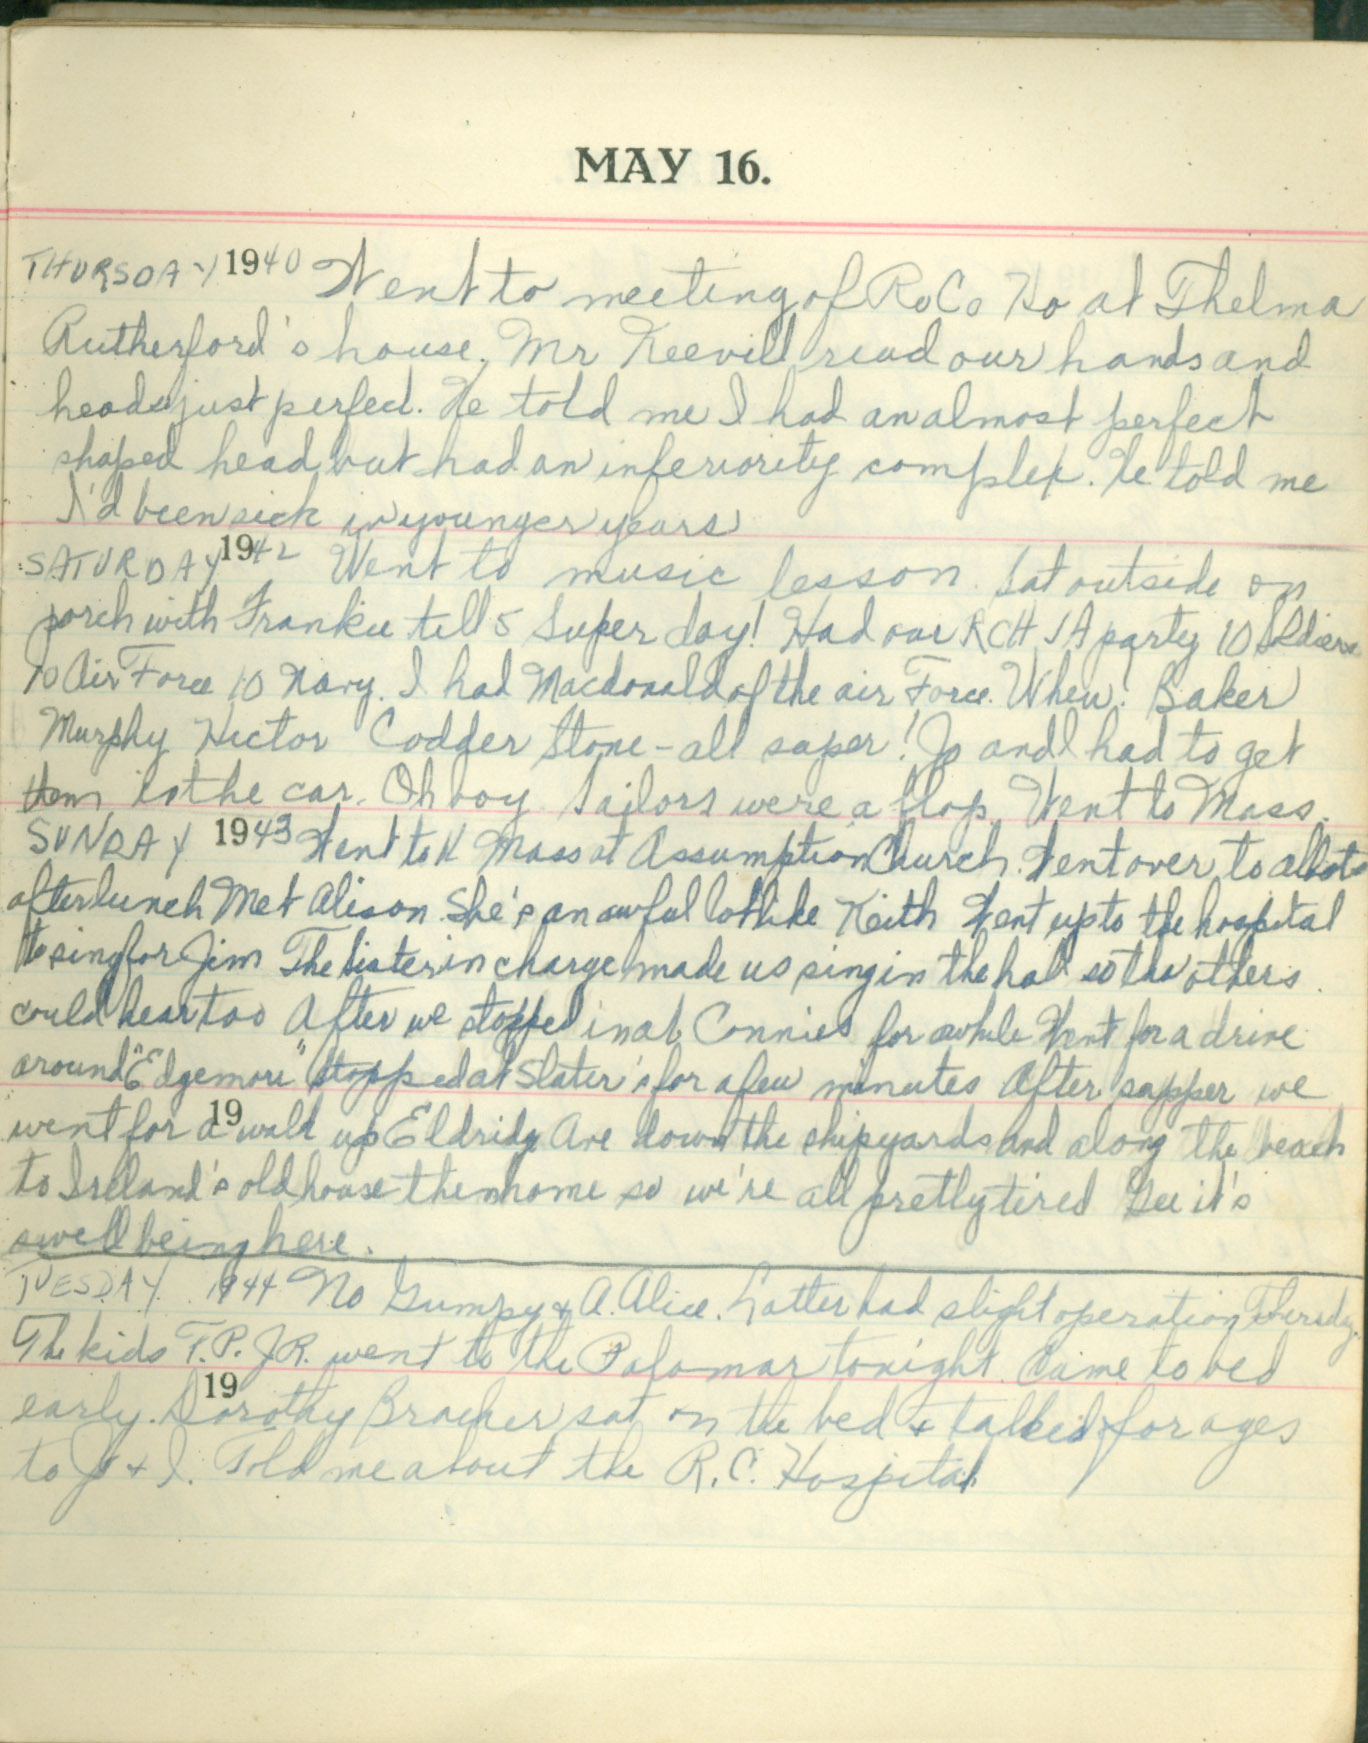 MAY 16.
THURSDAY 1940 Went to meeting of RoCo Ho at Thelma
Rutherford's house. Mr Keevill read our hands and
heads just perfect. He told me I had an almost perfect
shaped head but had an inferiority complex. He told me
I'd been sick in younger years
SATURDAY 1942 Went to music lesson. Sat outside on
porch with Frankie till 5 Super day! Had our party 10 Soldiers
10 Air Force 10 Navy. I had Macdonald of the air Force. Whew! Baker
Murphy Hector Codger Stone - all super! Jo and I had to get
them in the car. Oh boy. Sailors were a flop. Went to Mass.
SUNDAY 1943 Went to 11 Mass at Assumption Church. Went over to
after lunch Met Alison. She's an awful lot like Keith Went up to the hospital
to sing for Jim The Sister in charge made us sing in the hall so the others
could hear too After we stopped in at Connies for awhile Went for a drive
around "Edgemore" Stopped at Slater's for a few minutes After supper we
19
went for a walk up Eldridge Ave down the shipyards and along the beach
to Ireland's old house then home so we're all pretty tired Gee it's
swell being here.
TUESDAY 1944 No Gumpy & A. Alice. Latter had slight operation Thursday.
The kids T.P. J.R. went to the Palomar tonight. Came to bed
19
early. Dorothy sat on the bed & talked for ages
to Jo & I. Told me about the R.C. Hospital